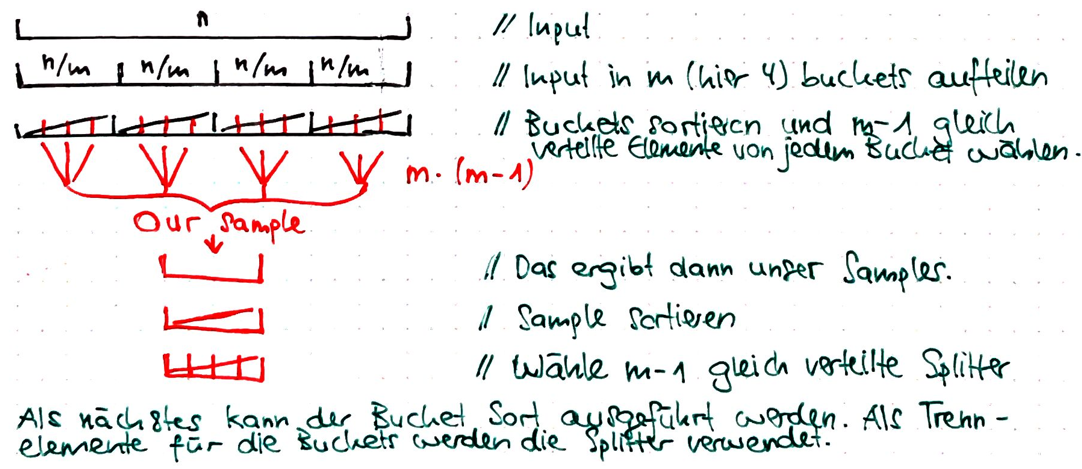 n // Input
n/m n/m n/m n/m // Input in m (hier 4) buckets aufteilen
// Buckets sortieren und m-1 gleich
verteilte Elemente von jedem Bucket wählen.
m · (m-1)
Our Sample
// Das ergibt dann unser Samples.
// Sample sortieren
// Wähle m-1 gleich verteilte Splitter
Als nächstes kann der Bucket Sort ausgeführt werden. Als Trenn-
elemente für die Buckets werden die Splitter verwendet.